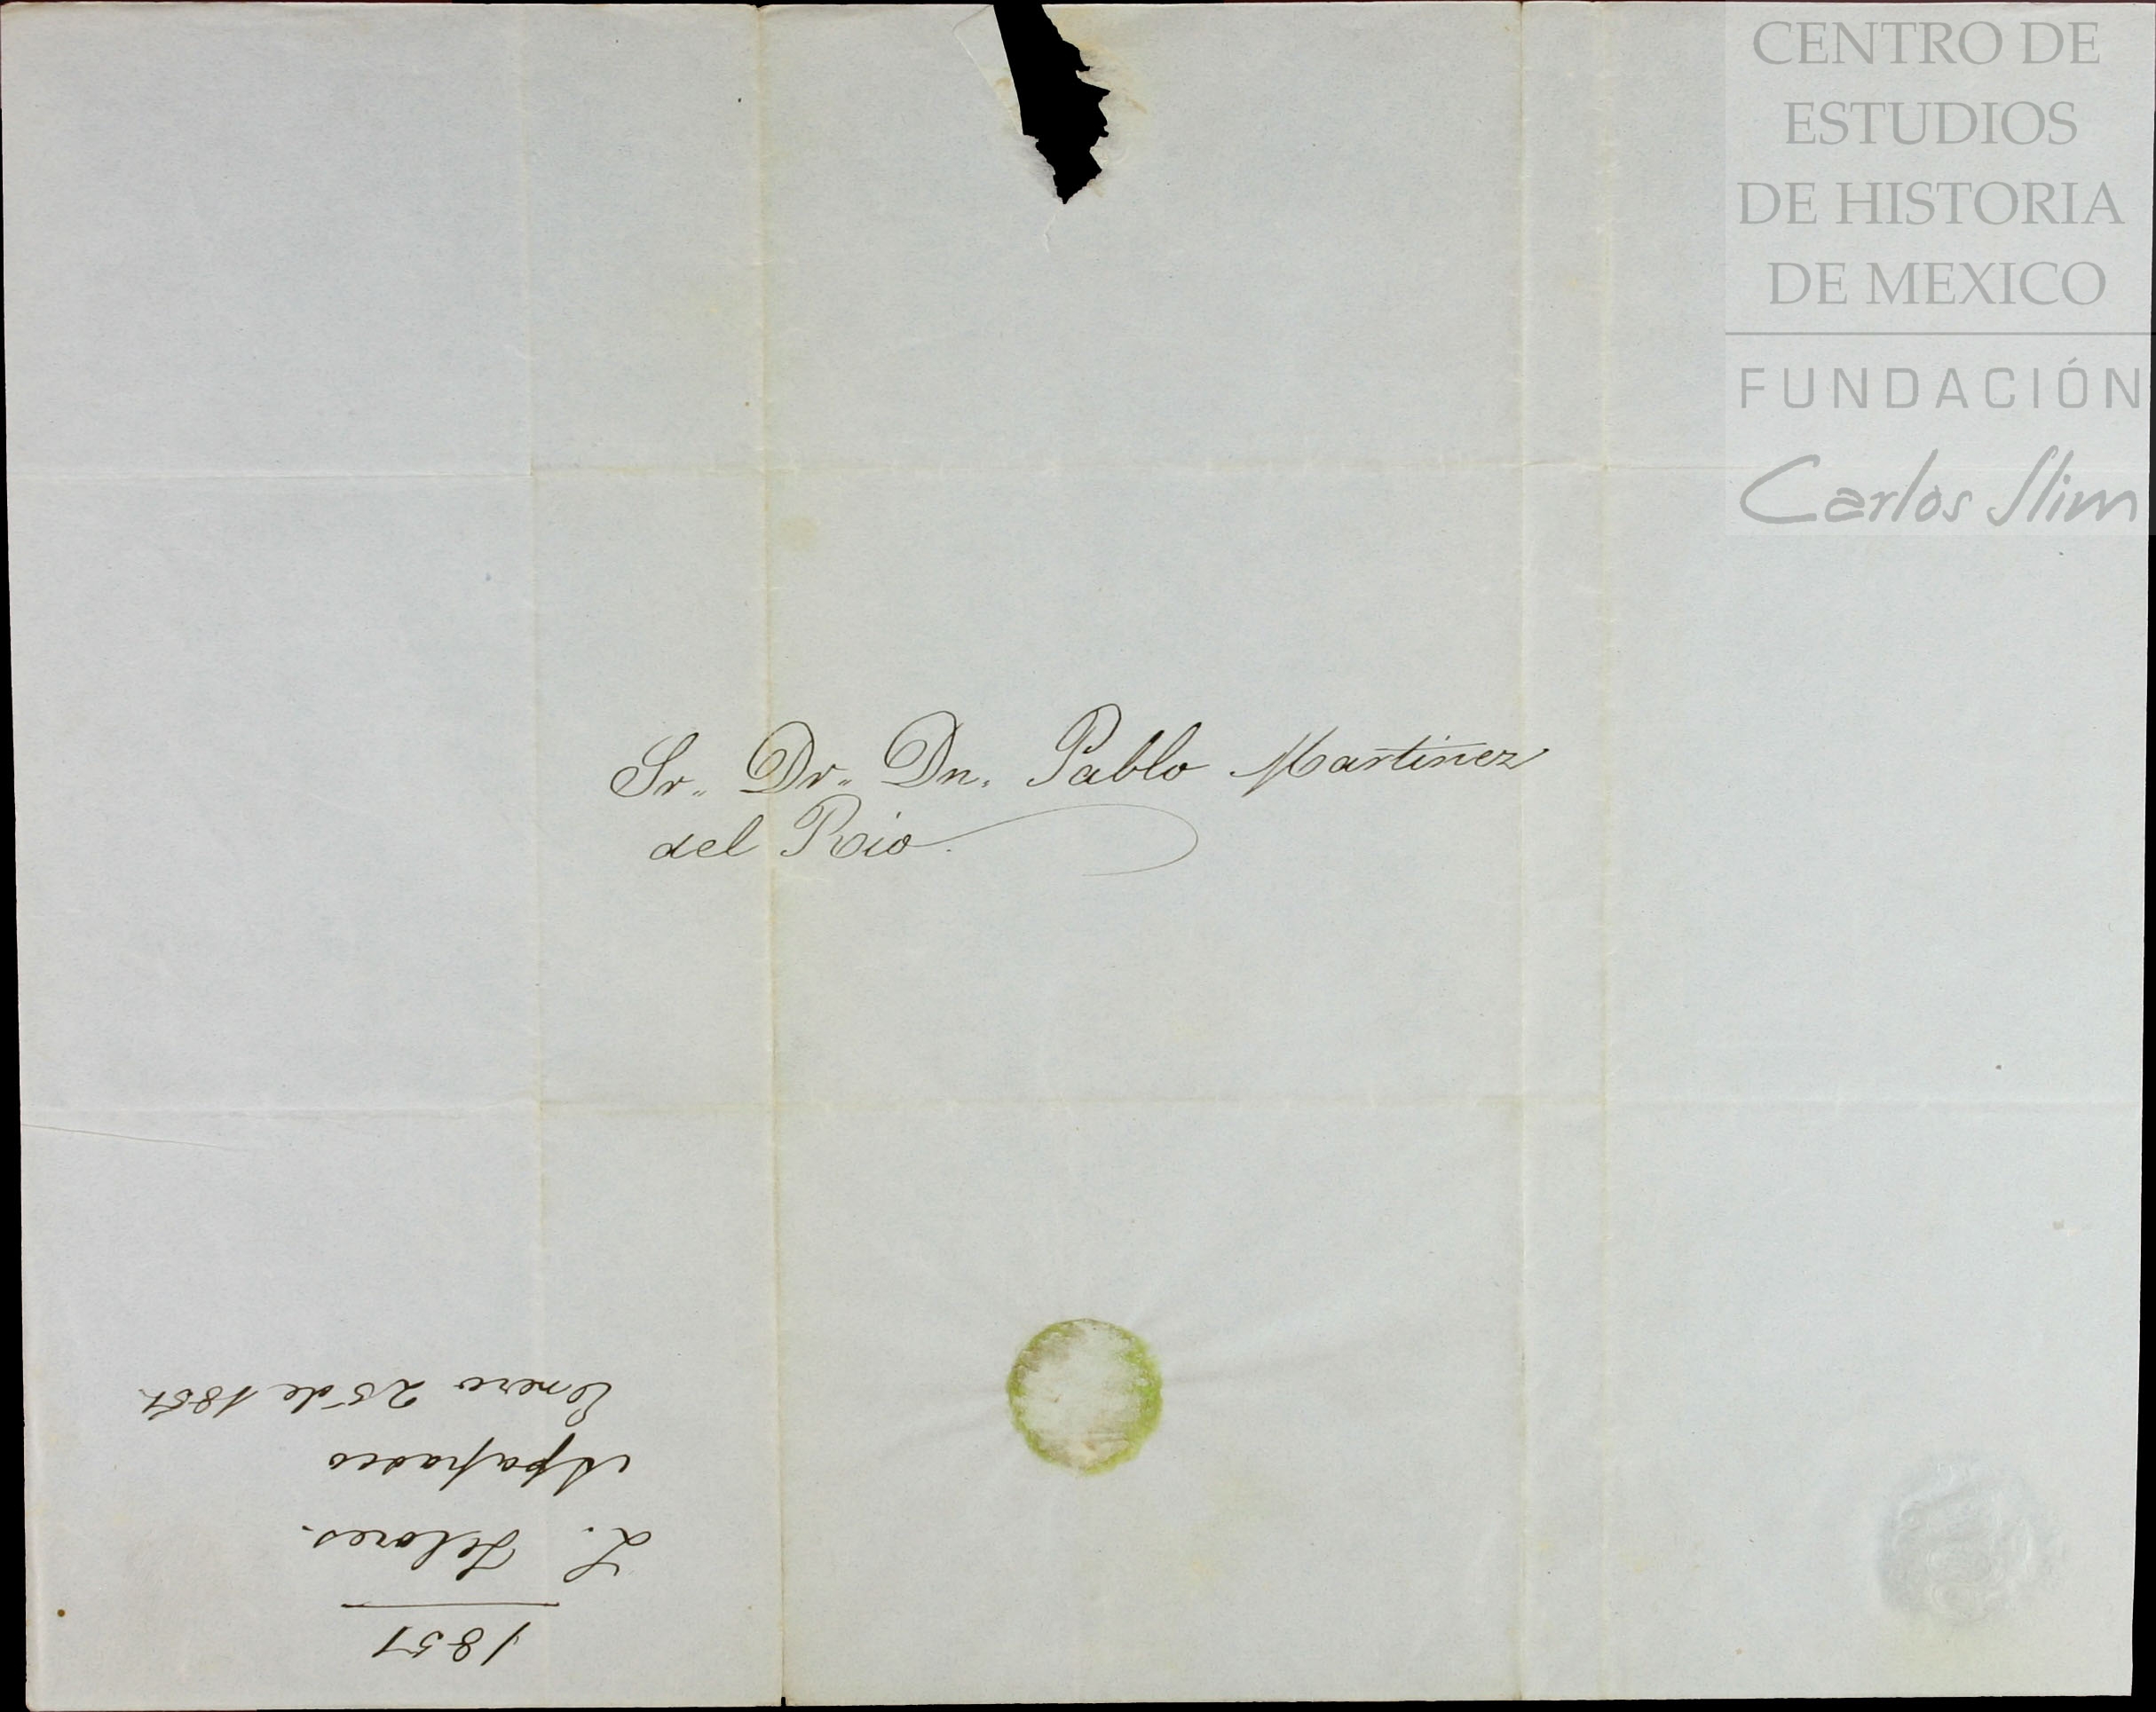 CENTRO DE
ESTUDIOS
DE HISTORIA
DE MEXICO
FUNDACIÓN
Carlos Slim
Sr. Dr. Dn. Pablo Martinez
del Rio.
1851
L. Flores.
Apapasco
Enero 25 de 1851